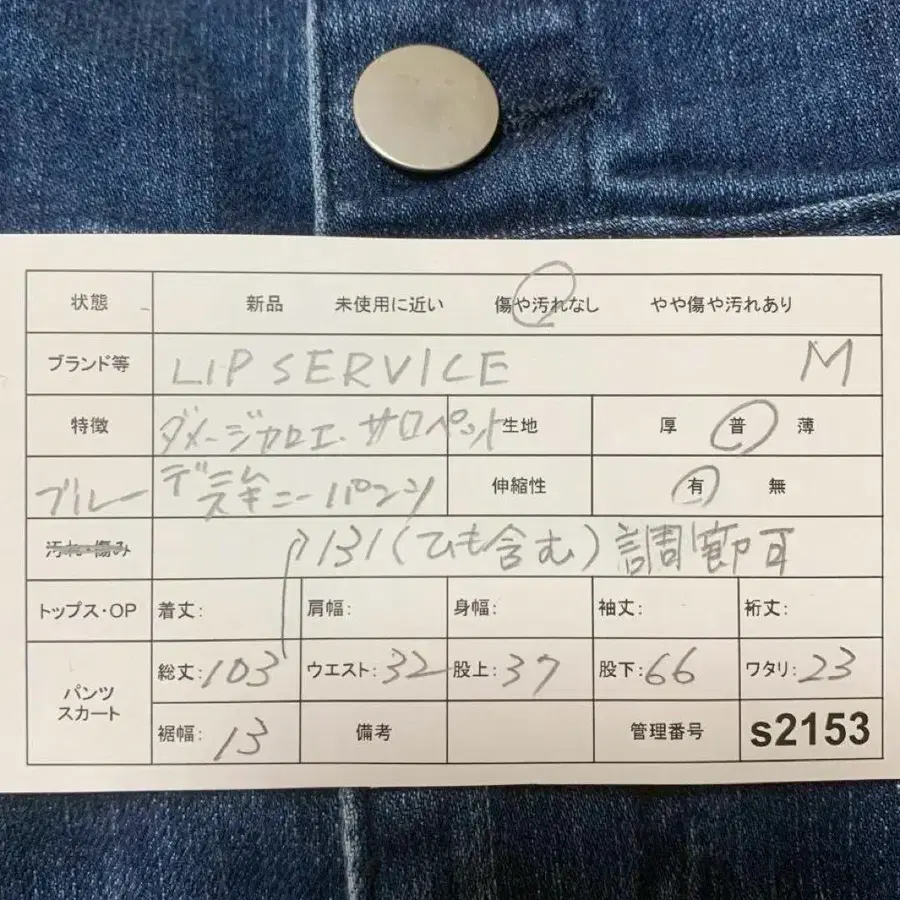 状態 新品 未使用に近い 傷や汚れなし やや傷や汚れあり
ブランド等 LIP SERVICE M
特徴 ダメージカロエ・サロペット 生地 厚 普 薄
ブルー デニム スキニーパンツ 伸縮性 有 無
汚れ・傷み 131(ひも含む)調節可
トップス・OP 着丈: 肩幅: 身幅: 袖丈: 裄丈:
パンツ スカート 総丈:103 ウエスト:32 股上:37 股下:66 ワタリ:23
裾幅:13 備考 管理番号 s2153